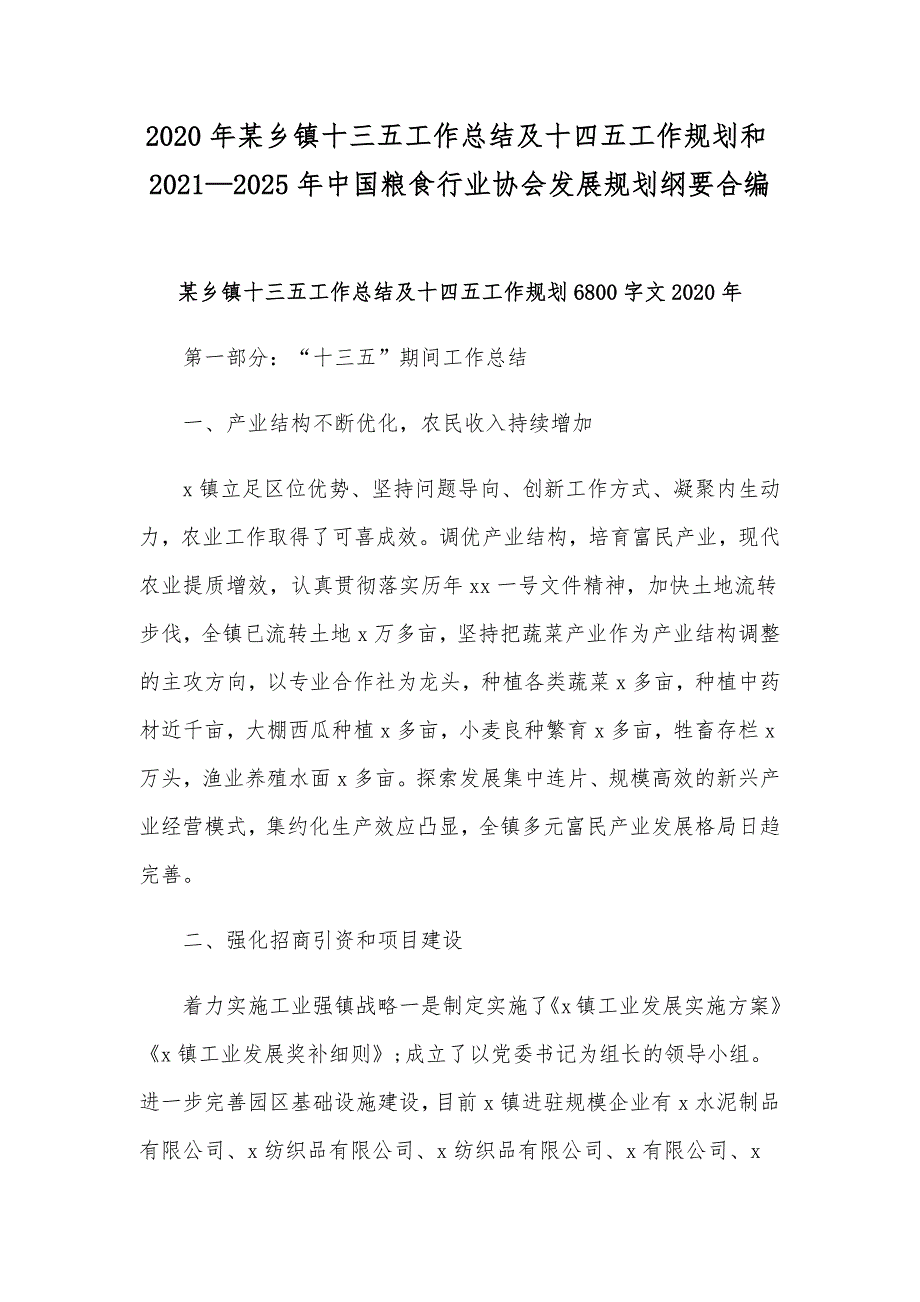 2020 年某乡镇十三五工作总结及十四五工作规划和
2021—2025 年中国粮食行业协会发展规划纲要合编
某乡镇十三五工作总结及十四五工作规划 6800 字文 2020 年
第一部分：“十三五”期间工作总结
一、产业结构不断优化，农民收入持续增加
x 镇立足区位优势、坚持问题导向、创新工作方式、凝聚内生动
力，农业工作取得了可喜成效。调优产业结构，培育富民产业，现代
农业提质增效，认真贯彻落实历年 xx 一号文件精神，加快土地流转
步伐，全镇已流转土地 x 万多亩，坚持把蔬菜产业作为产业结构调整
的主攻方向，以专业合作社为龙头，种植各类蔬菜 x 多亩，种植中药
材近千亩，大棚西瓜种植 x 多亩，小麦良种繁育 x 多亩，牲畜存栏 x
万头，渔业养殖水面 x 多亩。探索发展集中连片、规模高效的新兴产
业经营模式，集约化生产效应凸显，全镇多元富民产业发展格局日趋
完善。
二、强化招商引资和项目建设
着力实施工业强镇战略一是制定实施了《x 镇工业发展实施方案》
《x 镇工业发展奖补细则》;成立了以党委书记为组长的领导小组。
进一步完善园区基础设施建设，目前 x 镇进驻规模企业有 x 水泥制品
有限公司、x 纺织品有限公司、x 纺织品有限公司、x 有限公司、x